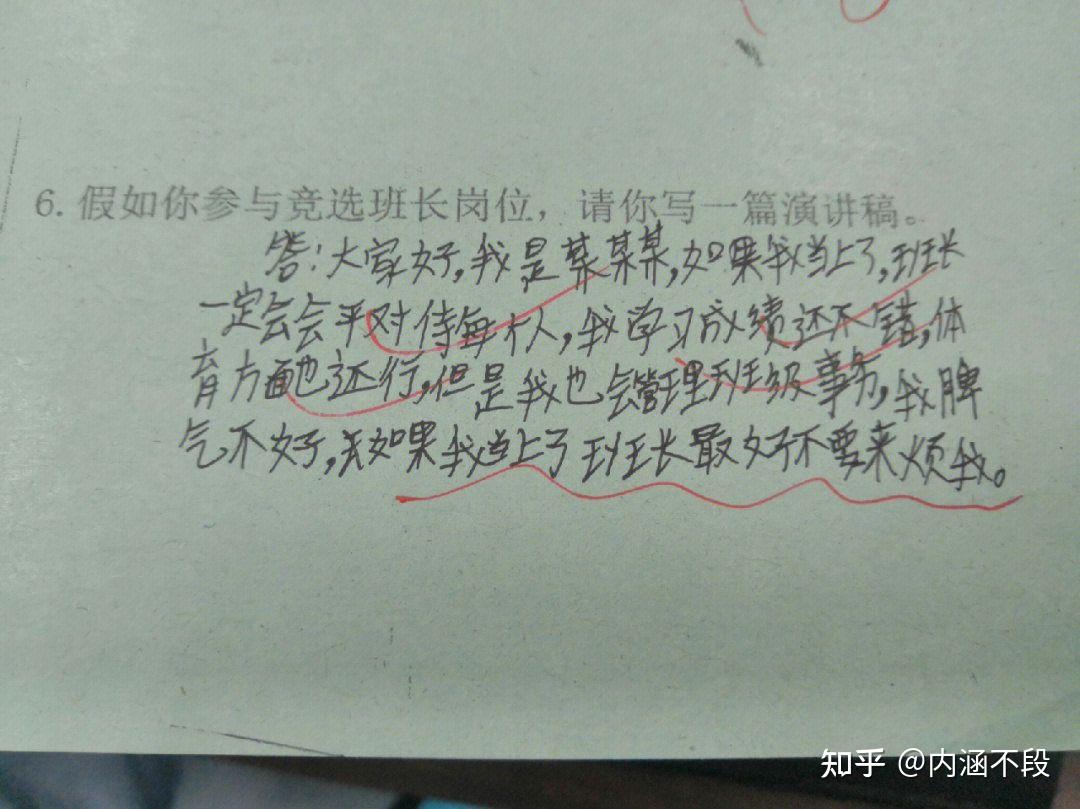 6. 假如你参与竞选班长岗位，请你写一篇演讲稿。
答：大家好，我是某某某，如果我当上了，班长
一定会会平对待每个人，我学习成绩还不错，体
育方面也还行，但是我也会管理班级事务，我脾
气不好，如果我当上了班长最好不要来烦我。
知乎 @内涵不段